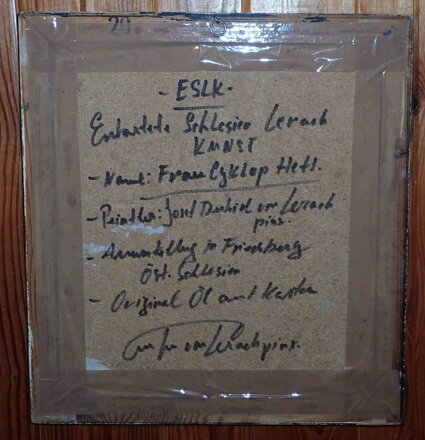 20
- ESLK -
Entartete Schlesien Lerach
KUNST
- Name: Frau Cyklop Hetl.
- Peintler: Josef von Lerach
pinx.
- in Friedberg
Öst. Schlesien
- Original Öl auf Karton
von Lerach pinx.